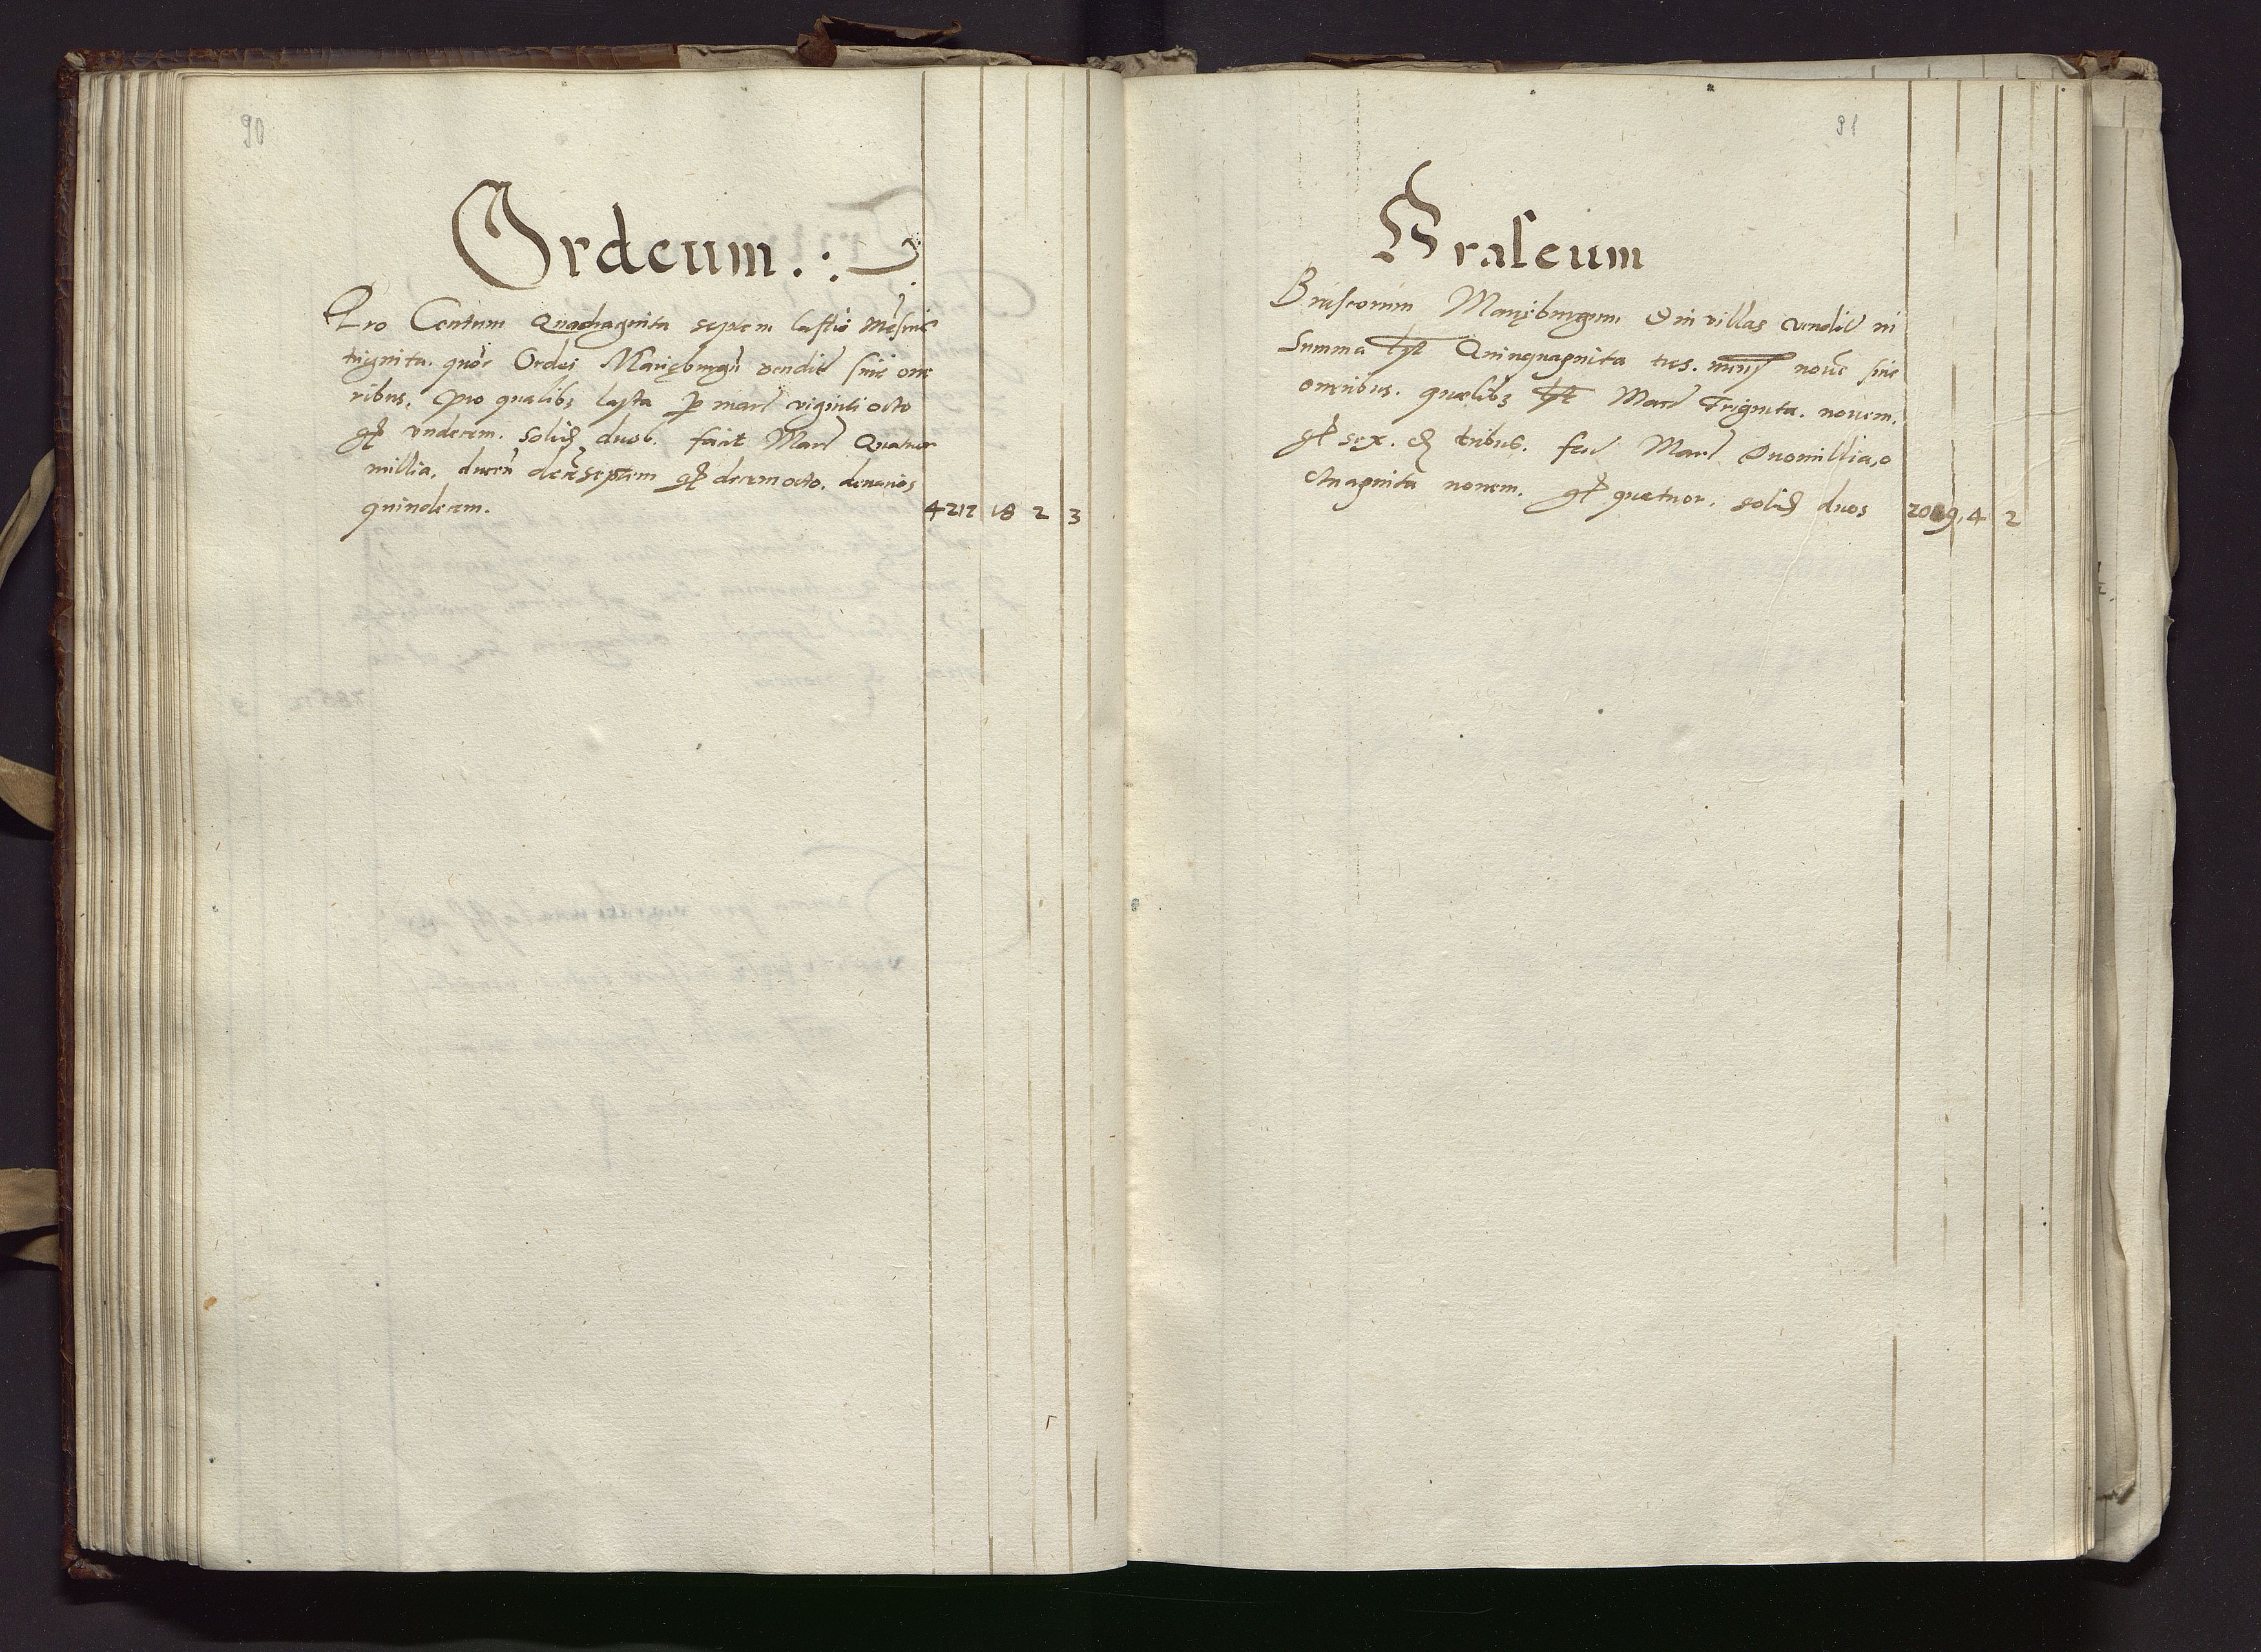 90
Ordeum.:
Pro Centum Quadraginta septem lastis mesuris
triginta. quos Ordei Marięburgi vendit sine one
ribus. pro qualibz lasta p marc viginti octo
gr vndecim. solid duob. facit Marc Quatuor
millia, ducen decēseptem gr decemocto. denarios
quindecim.
4217 18 2 3
91
Braseum
Braseorum Marięburgum et in villas vendit in
Summa last Quinquaginta tres. mens novē sine
oneribus. quælibz last Marc Triginta. novem.
gr sex. d tribus. fac Marc Duomillia, o
ctuaginta novem. gr quatuor. solid duos
2089, 4 2